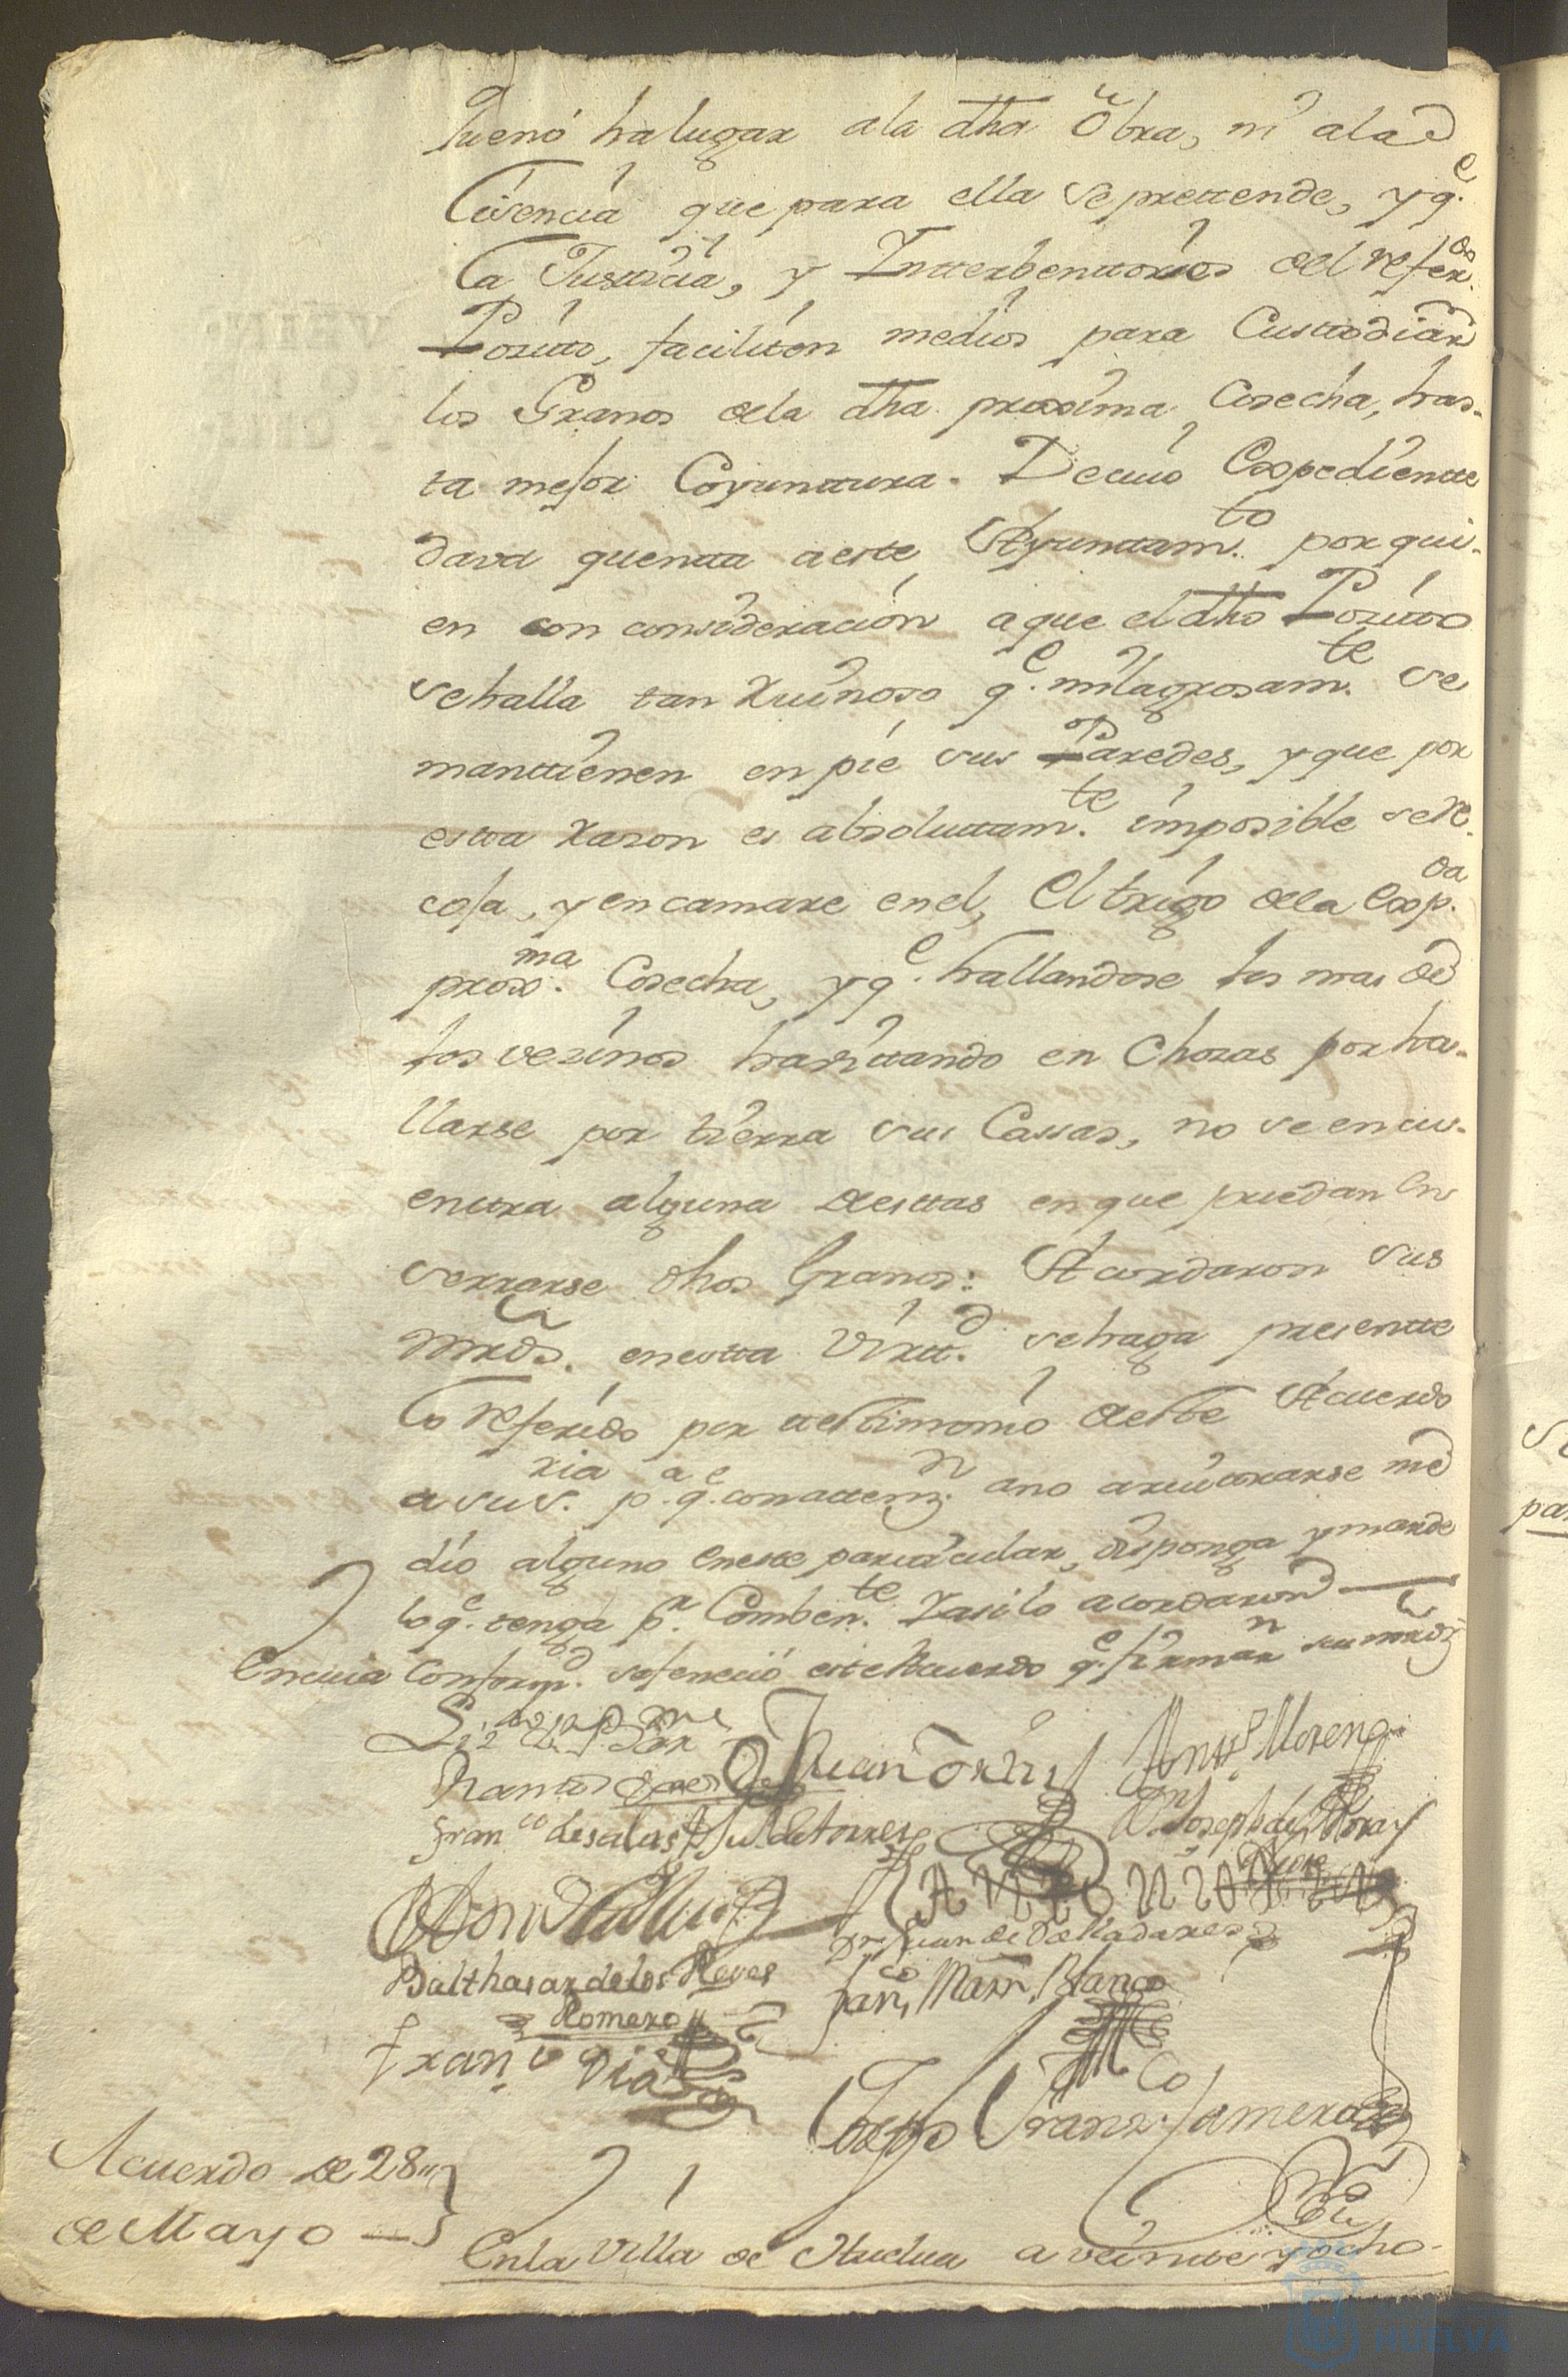 que nó ha lugar a la dha Obra, ni a la
Lisencia que para ella se prettende, y q.e
la Justicia, y Intterbenttores del refer.do
Posito, faciliten medios para Custtodiar
los Granos de la dha proxima Cosecha, has-
ta mejor Coyunttura. De cuio Expedientte
dava quentta a este Ayunttam.to por qui-
en con consideracion a que el dho Positto
se halla tan Ruinoso q.e milagrosam.te se
manttienen en pie sus Paredes, y que por
estta Razon es absoluttam.te imposible se re-
coja, y encamare en el, el trigo de la Exp.da
prox.ma Cosecha, y q.e hallandose los mas de
los vezinos havittando en Chozas por ha-
llarse por tierra sus Cassas, no se encu-
enttra alguna de esttas en que puedan en
serrarse dhos Granos: Acordaron sus
mrds. en estta Virtt.d se haga presentte
lo referido por testimonio de este Acuerdo
a su S.ria p.a q.e con atten.n a no arvitrarse me
dio alguno en este parttícular, disponga y mande
lo q.e tenga p.r Comben.te Y asi lo acordaron
En cuia Conform.d se feneció este Acuerdo q.e firmar.n sus mrds
Juan Ortiz
Antt.o Moreno
Fran.co de salas
de torres
D.n Joseph de Mora y
Balthasar de los Reyes
Romero
D.n Juan de Valladares
Fran.co Marn. Blanco
Fran.co Diaz
Diego Franz.co Jamera
Acuerdo de 28
de Mayo
En la Villa de Huelua a veinte y ocho
HUELVA